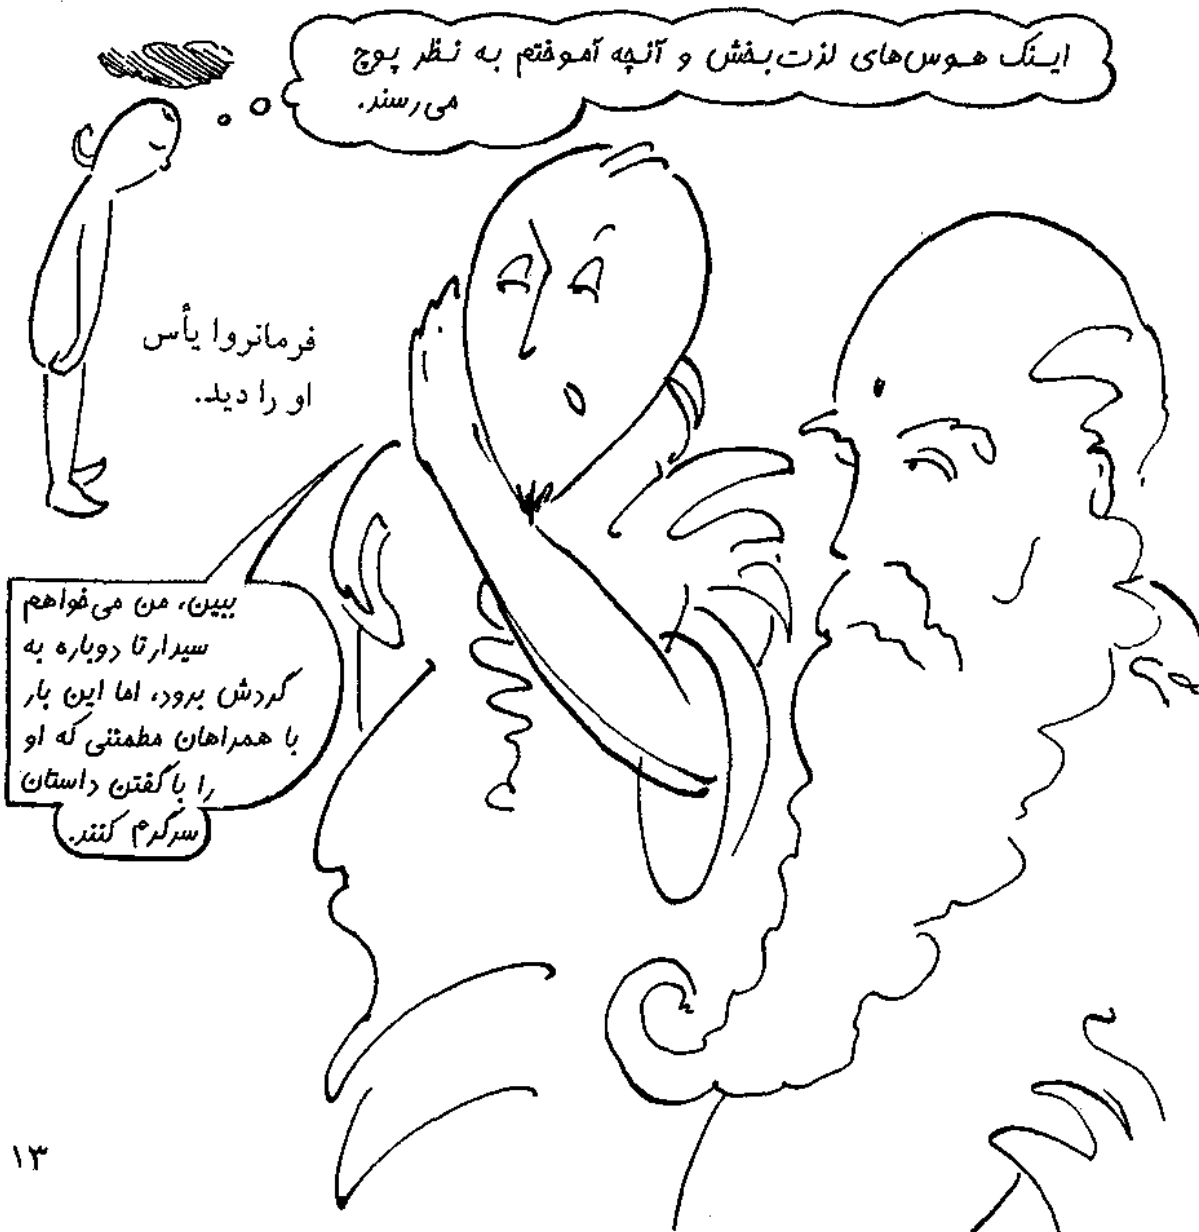 اینک هوس‌های لذت‌بخش و آنچه آموختم به نظر پوچ
می‌رسند.
فرمانروا یأس
او را دید.
ببین، من می‌خواهم
سیدارتا دوباره به
گردش برود، اما این بار
با همراهان مطمئنی که او
را با گفتن داستان
سرگرم کنند.
۱۳